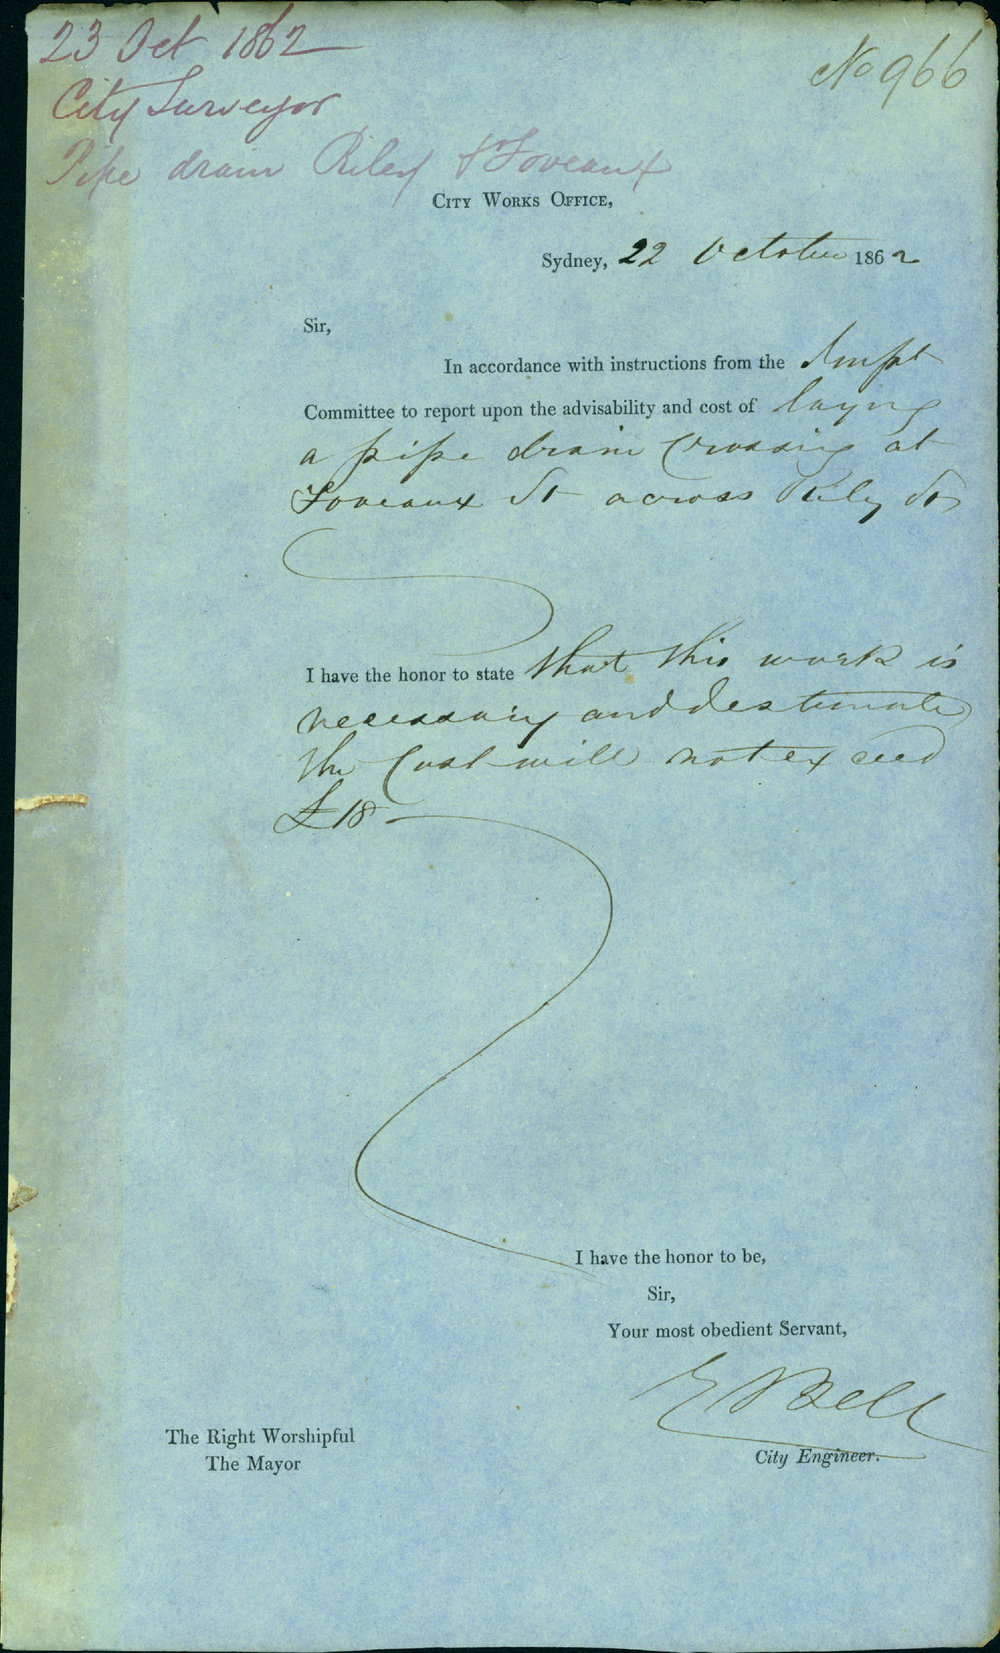 23 Oct 1862
No 966
City Surveyor
Pipe drain Riley & Foveaux
CITY WORKS OFFICE,
Sydney, 22 October 1862
Sir,
In accordance with instructions from the Impt
Committee to report upon the advisability and cost of laying
a pipe drain Crossing at
Foveaux St across Riley St
I have the honor to state that this work is
necessary and I estimate
the Cost will not exceed
£18
I have the honor to be,
Sir,
Your most obedient Servant,
E Bell
City Engineer.
The Right Worshipful
The Mayor